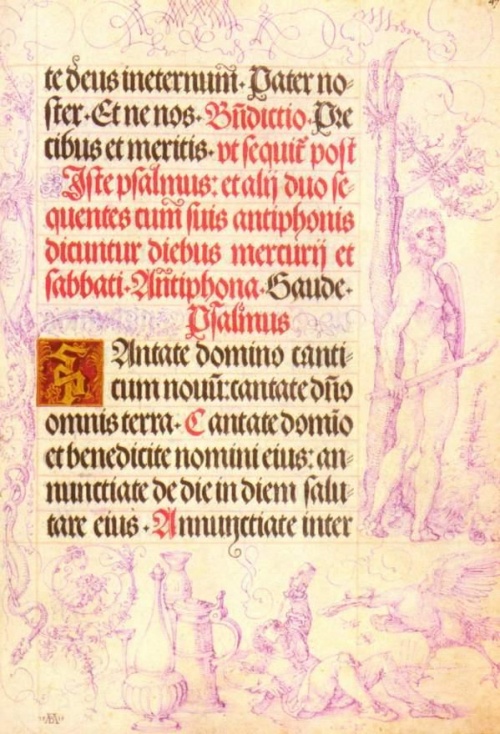 te deus ineternum̄. Pater no⸗
ster. Et ne nos. Bn̄dictio. Pre
cibus et meritis. vt sequit᷑ post
Iste psalmus: et alij duo se⸗
quentes cum̄ suis antiphonis
dicuntur diebus mercurij et
sabbati. Antiphona. Gaude.
Psalmus
CAntate domino canti⸗
cum nouū: cantate dn̄o
omnis terra. Cantate domio
et benedicite nomini eius: an⸗
nunctiate de die in diem salu⸗
tare eius. Annunctiate inter